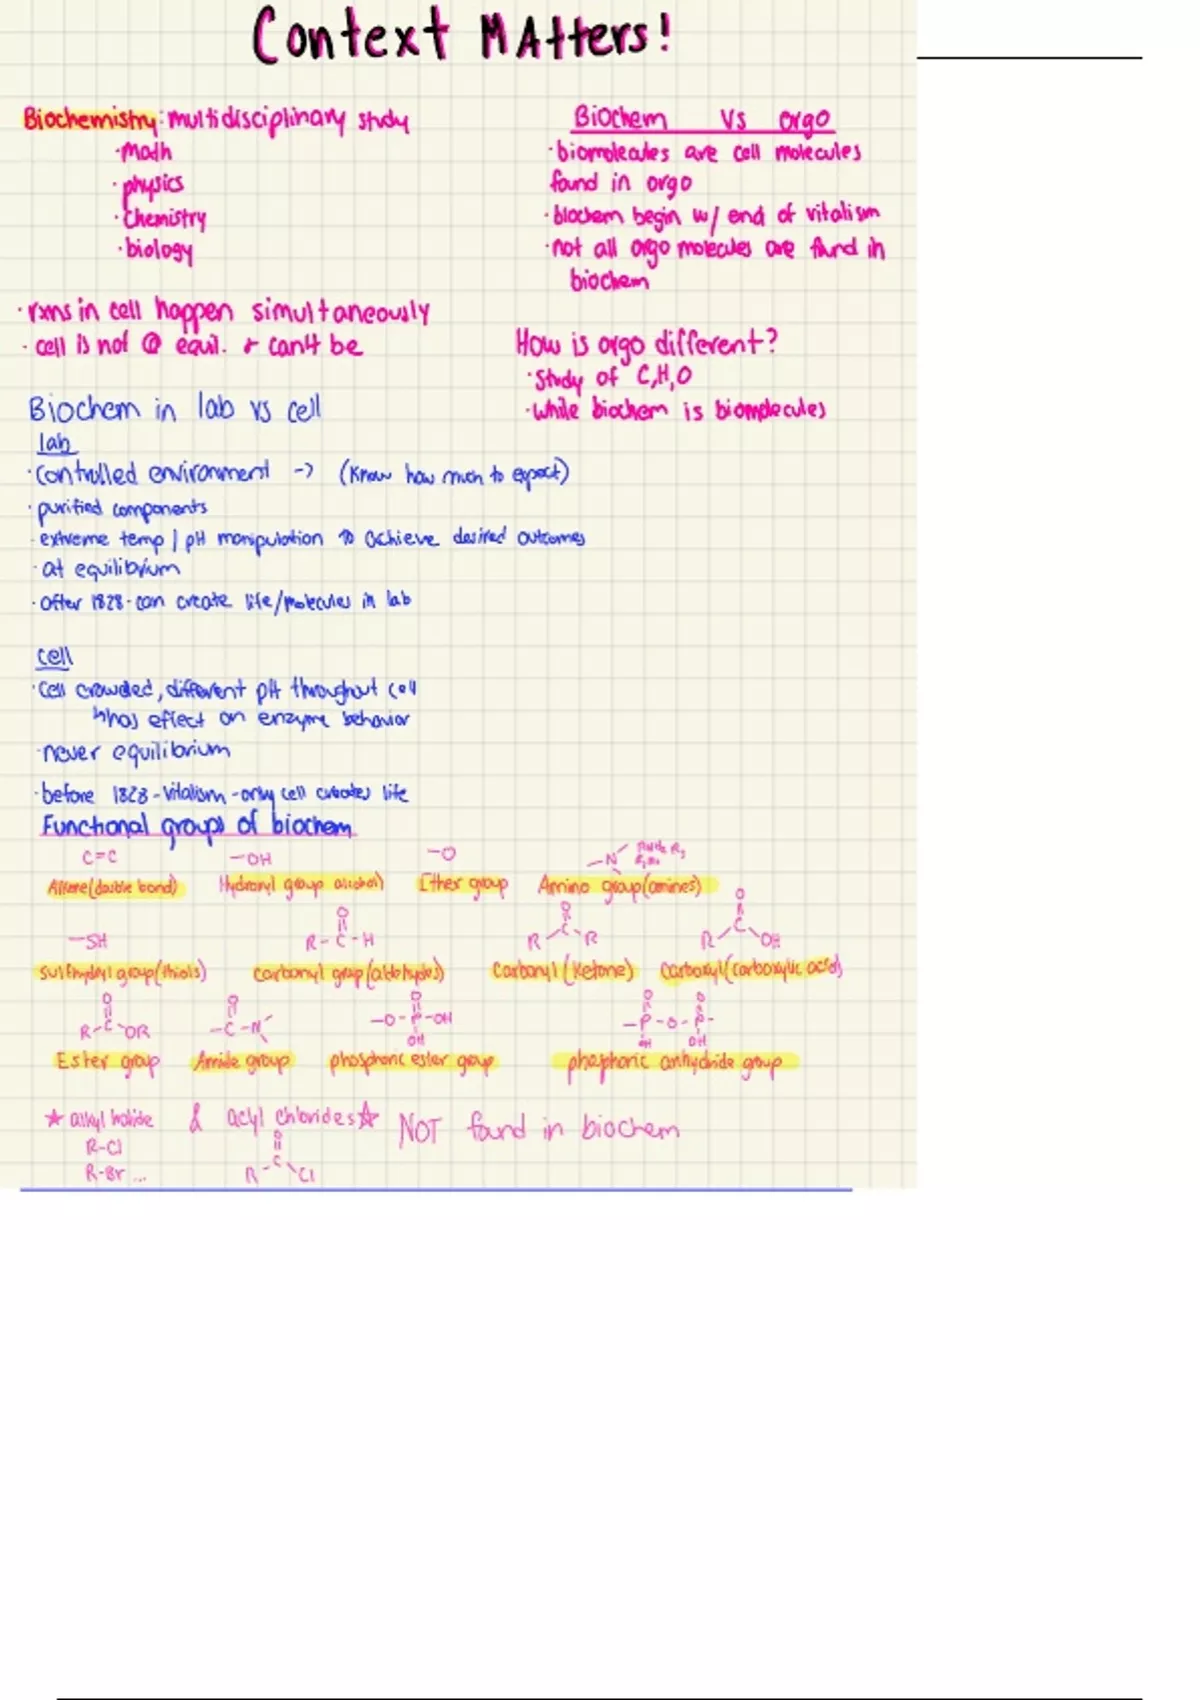 Context Matters!
Biochemistry: multidisciplinary study
·math
·physics
·chemistry
·biology
·rxns in cell happen simultaneously
·cell is not @ equil. + can't be
Biochem vs orgo
·biomolecules are cell molecules
found in orgo
·biochem begin w/ end of vitalism
·not all orgo molecules are found in
biochem
How is orgo different?
·Study of C,H,O
·while biochem is biomolecules
Biochem in lab vs cell
lab
·controlled environment -> (know how much to expect)
·purified components
·extreme temp / pH manipulation to achieve desired outcomes
·at equilibrium
·after 1828-can create life/molecules in lab
cell
·Cell crowded, different pH throughout cell
↳has effect on enzyme behavior
·never equilibrium
·before 1828-vitalism-only cell creates life
Functional groups of biochem
C=C
-OH
-O
-N
Alkene(double bond)
Hydroxyl group alcohol)
Ether group
Amino group(amines)
-SH
O
R-C-H
O
R C R
O
R C OH
Sulfhydryl group(thiols)
carbonyl group(aldehydes)
Carbonyl (Ketone)
Carboxyl(carboxylic acid)
O
R-C OR
O
-C-N
O
-O-P-OH
OH
O O
-P-O-P-
OH OH
Ester group
Amide group
phosphoric ester group
phosphoric anhydride group
☆ alkyl halide & acyl chlorides☆ NOT found in biochem
R-Cl
R-Br ...
O
R-C Cl